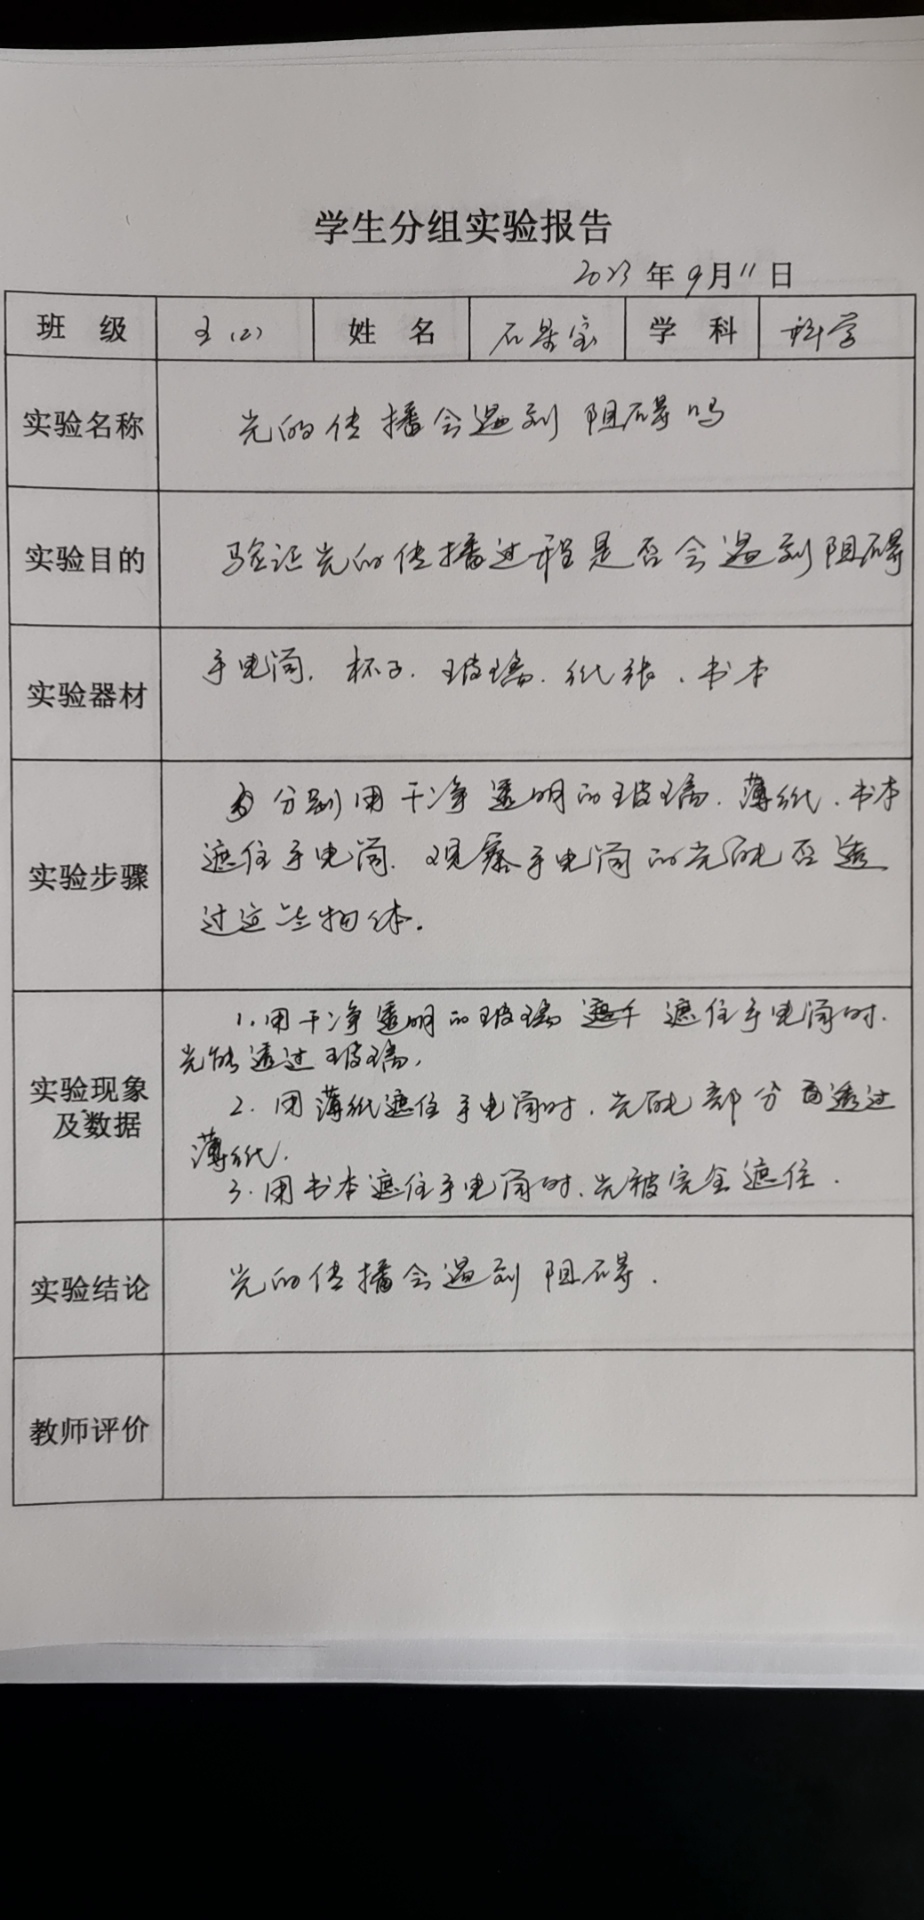 学生分组实验报告
2023年9月11日
班 级 五(2) 姓 名 石景宝 学 科 科学
实验名称 光的传播会遇到阻碍吗
实验目的 验证光的传播过程是否会遇到阻碍
实验器材 手电筒、杯子、玻璃、纸张、书本
实验步骤 分别用干净透明的玻璃、薄纸、书本
遮住手电筒、观察手电筒的光能否透
过这些物体.
实验现象
及数据
1.用干净透明的玻璃 遮住手电筒时、
光能透过玻璃,
2.用薄纸遮住手电筒时、光能部分透过
薄纸.
3.用书本遮住手电筒时、光被完全遮住.
实验结论 光的传播会遇到阻碍.
教师评价